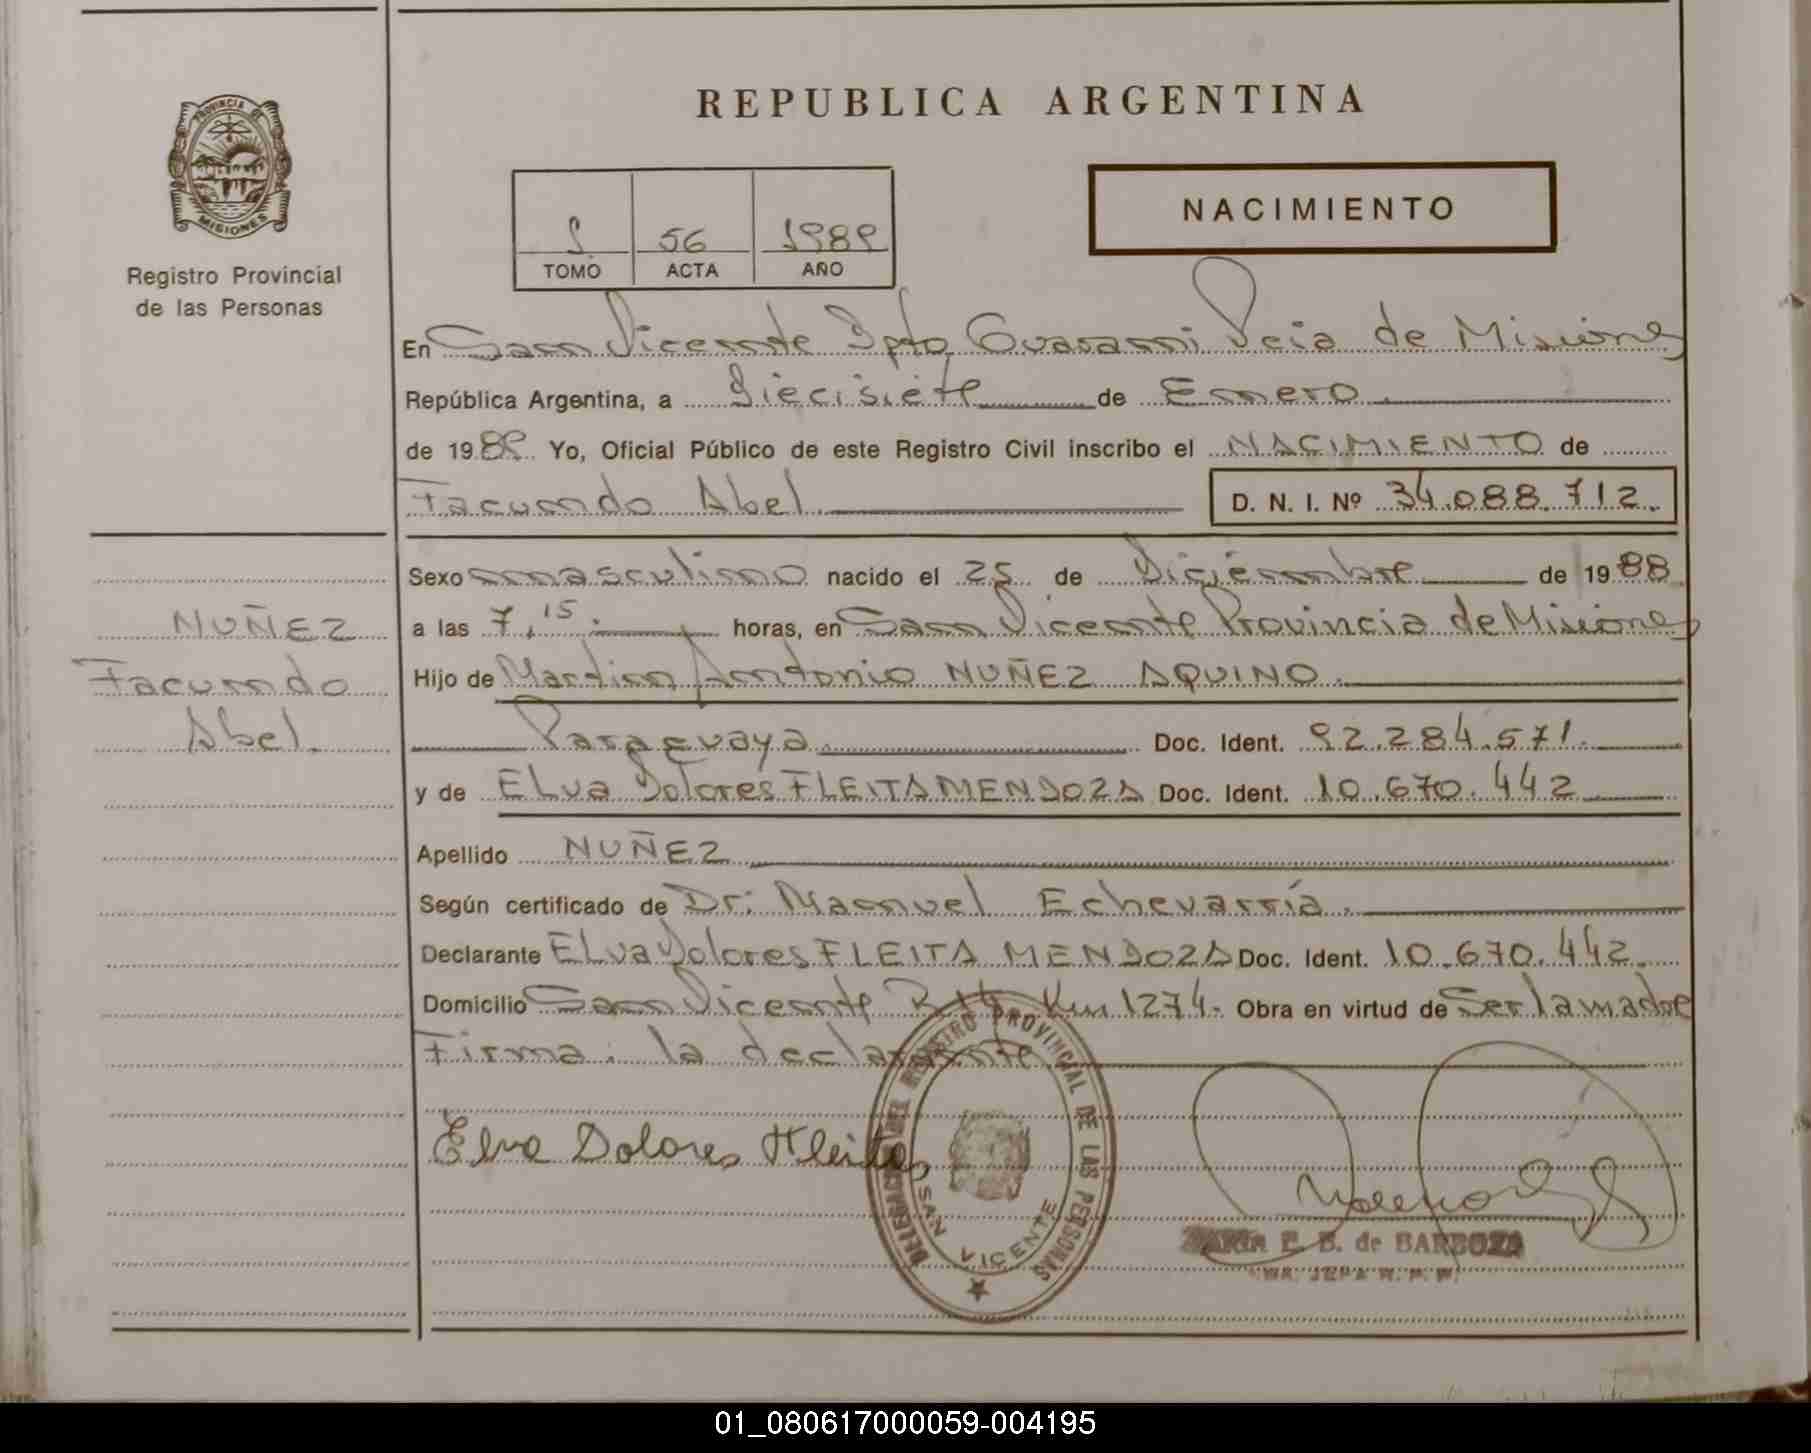 REPUBLICA ARGENTINA
PROVINCIA DE
MISIONES
Registro Provincial
de las Personas
1 56 1989
TOMO ACTA AÑO
NACIMIENTO
En San Vicente Dpto Guarani Pcia de Misiones
República Argentina, a Diecisiete de Enero
de 1989 Yo, Oficial Público de este Registro Civil inscribo el NACIMIENTO de
Facundo Abel D. N. I. Nº 34.088.712.
Sexo masculino nacido el 25 de Diciembre de 1988
a las 7,15 horas, en San Vicente Provincia de Misiones
NUÑEZ
Facundo
Abel.
Hijo de Martin Antonio NUÑEZ AQUINO.
Paraguaya Doc. Ident. 92.284.571.
y de ELva Dolores FLEITA MENDOZA Doc. Ident. 10.670.442
Apellido NUÑEZ
Según certificado de Dr: Manuel Echevarría.
Declarante ELva Dolores FLEITA MENDOZA Doc. Ident. 10.670.442.
Domicilio San Vicente R 14 Km 1274. Obra en virtud de Ser la madre
Firma: la declarante
Elva Dolores Fleitas
DELEGACION DEL REGISTRO PROVINCIAL DE LAS PERSONAS
SAN VICENTE
MARIA E. B. de BARBOZA
01_080617000059-004195